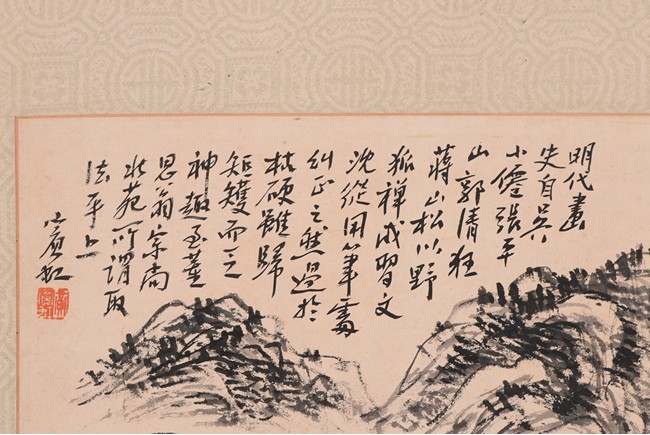 明代畫
史自吳
小僊張平
山郭清狂
蔣山松以野
狐禅成習文
沈從用筆處
糾正之然過於
枯硬雖歸
矩矱而乏
神趣至董
思翁崇尚
北苑所謂取
法乎上
賓虹